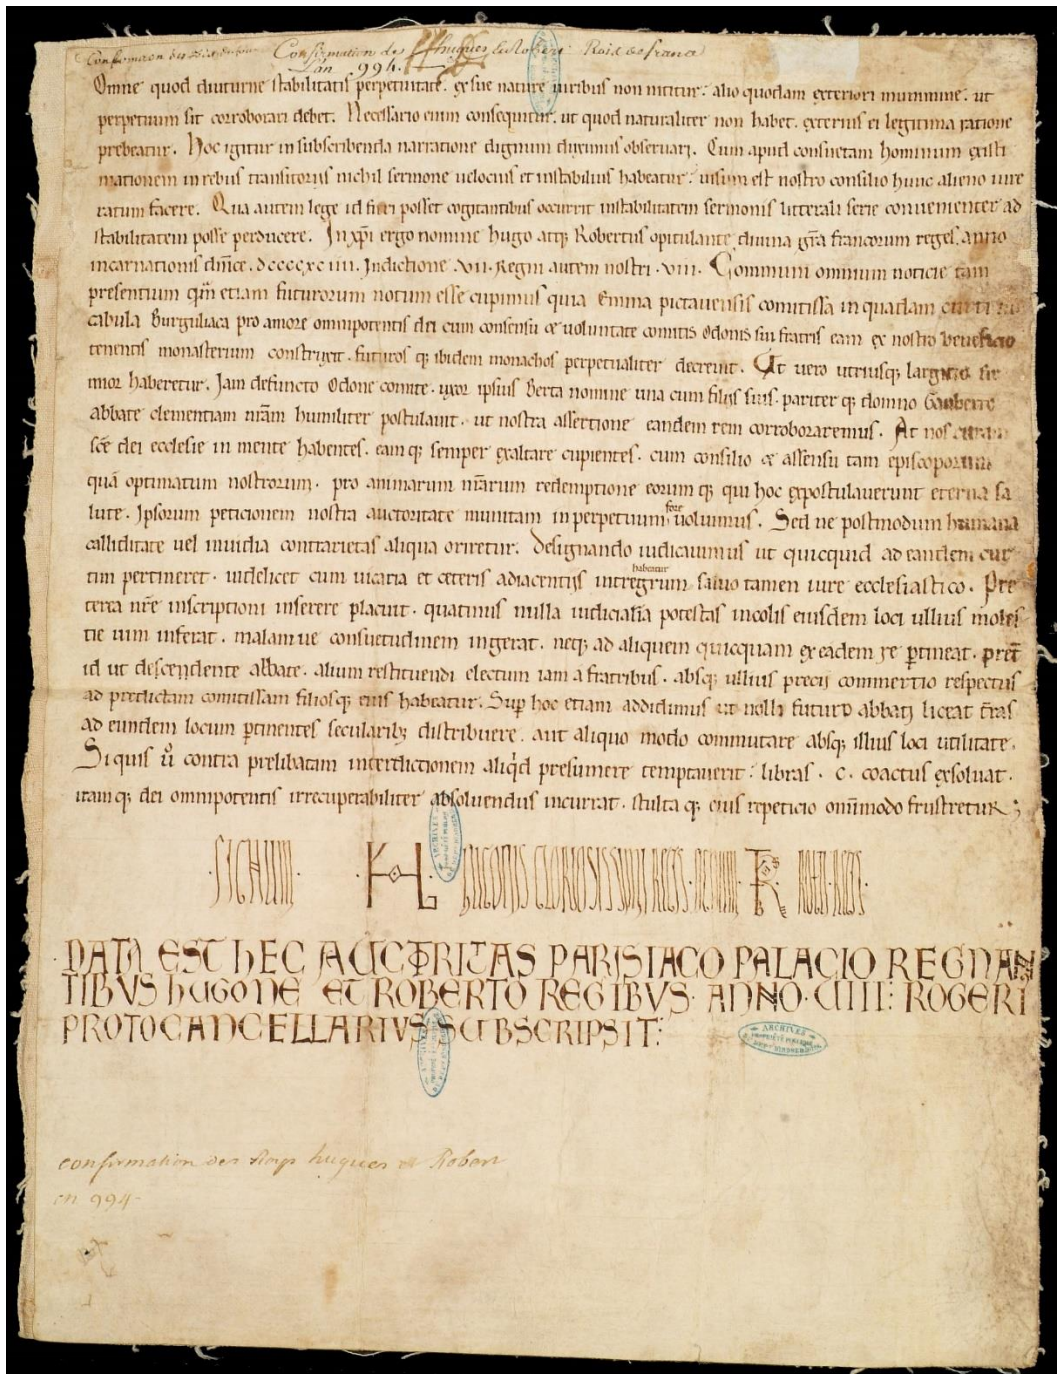 Confirmation des hugues et Robert Rois de france
L'an 994.
Omne quod diuturne stabilitatis perpetuitate. ex sue nature uiribus non nititur: alio quodam exteriori munimine. ut
perpetuum sit corroborari debet. Necessario enim consequitur. ut quod naturaliter non habet. exterius ei legitima ratione
prebeatur. Hoc igitur in subscribenda narratione dignum duximus obseruari. Cum apud consuetam hominum existi
mationem in rebus transitoriis nichil sermone uelocius et instabilius habeatur: uisum est nostro consilio hunc alieno iure
ratum facere. Qua autem lege id fieri posset cogitantibus occurrit instabilitatem sermonis litterali serie conuenienter ad
stabilitatem posse perducere. In xpi ergo nomine hugo atq; Robertus opitulante diuina gra francorum reges. anno
incarnationis dnice. dccccxciiii. Indictione .vii. Regni autem nostri .viii. Communi omnium noticie tam
presentium qm etiam futurorum notum esse cupimus quia Emma pictauensis comitissa in quadam
cabula Burguliaca pro amore omnipotentis dei cum consensu & uoluntate comitis Odonis sui fratris eam ex nostro beneficio
tenentis monasterium construxit. futuros q; ibidem monachos perpetualiter decreuit. Ut uero utriusq; largitio fir
mior haberetur. Iam defuncto Odone comite. uxor ipsius Berta nomine una cum filiis suis. pariter q; domno Gauberto
abbate clementiam nram humiliter postulauit. ut nostra assertione eandem rem corroboraremus. At nos curam
sce dei ecclesie in mente habentes. eam q; semper exaltare cupientes. cum consilio & assensu tam episcoporum
quã optimatum nostrorum. pro animarum nrarum redemptione eorum q; qui hoc expostulauerunt eterna sa
lute. Ipsorum peticionem nostra auctoritate munitam in perpetuum fore uolumus. Sed ne postmodum humana
calliditate uel inuidia contrarietas aliqua oriretur. Designando iudicauimus ut quicquid ad eandem cur
tim pertineret. uidelicet cum uicaria et ceteris adiacentiis intregrum habeatur saluo tamen iure ecclesiastico. Pre
terea nre inscriptioni inserere placuit. quatinus nulla iudicialia potestas incolis eiusdem loci ullius moles
tie uim inferat. malam ue consuetudinem ingerat. neq; ad aliquem quicquam ex eadem re ptineat. pret
id ut descendente abbate. alium restituendi electum iam a fratribus. absq; ullius precii commertio respectus
ad predictam comitissam filiosq; eius habeatur. Sup hoc etiam addidimus ut nulli futuro abbati liceat tras
ad eundem locum ptinentes secularib; distribuere. aut aliquo modo commutare absq; illius loci utilitate.
Si quis u contra prelibatam interdictionem aliqd presumere temptauerit: libras . c. coactus exsoluat.
itam q; dei omnipotentis irrecuperabiliter absoluendus incurrat. stulta q; eius repeticio omimodo frustretur;
.SIGNUM. HUGONIS GLORIOSISSIMI REGIS. ROTBERTI REGIS.
DATA EST HEC AUCTORITAS PARISIACO PALACIO REGNAN
TIBVS HUGONE ET ROBERTO REGIBVS. ANNO. CIIII: ROGERI
PROTOCANCELLARIVS SUBSCRIPSIT:
ARCHIVES
confirmation des Roys hugues et Robert
en 994